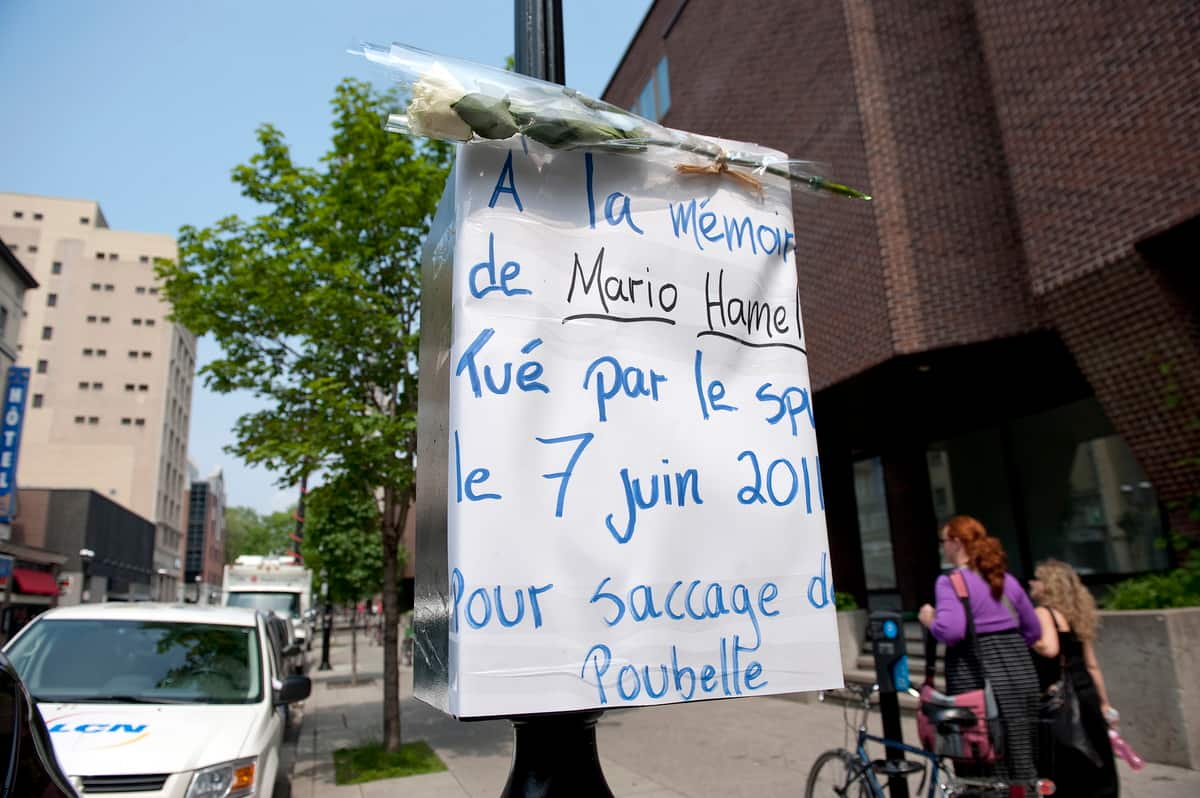 À la mémoir
de Mario Hamel
Tué par le spv
le 7 juin 2011
Pour saccage de
Poubelle
HÔTEL
LCN